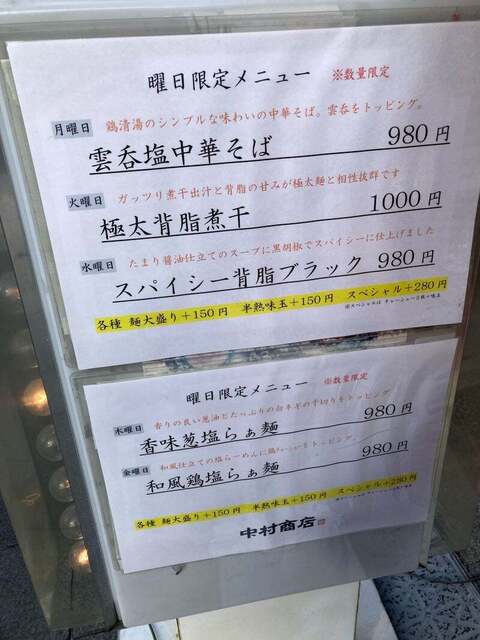 曜日限定メニュー ※数量限定
月曜日 鶏清湯のシンプルな味わいの中華そば。雲呑をトッピング。
雲呑塩中華そば 980円
火曜日 ガッツリ煮干出汁と背脂の甘みが極太麺と相性抜群です
極太背脂煮干 1000円
水曜日 たまり醤油仕立てのスープに黒胡椒でスパイシーに仕上げました
スパイシー背脂ブラック 980円
各種 麺大盛り+150円 半熟味玉+150円 スペシャル+280円
曜日限定メニュー ※数量限定
木曜日 香りの良い葱油とたっぷりの白ネギの千切りをトッピング
香味葱塩らぁ麺 980円
金曜日 和風仕立ての塩らーめんに鶏チャーシューをトッピング。
和風鶏塩らぁ麺 980円
各種 麺大盛り+150円 半熟味玉+150円 スペシャル+280円
中村商店